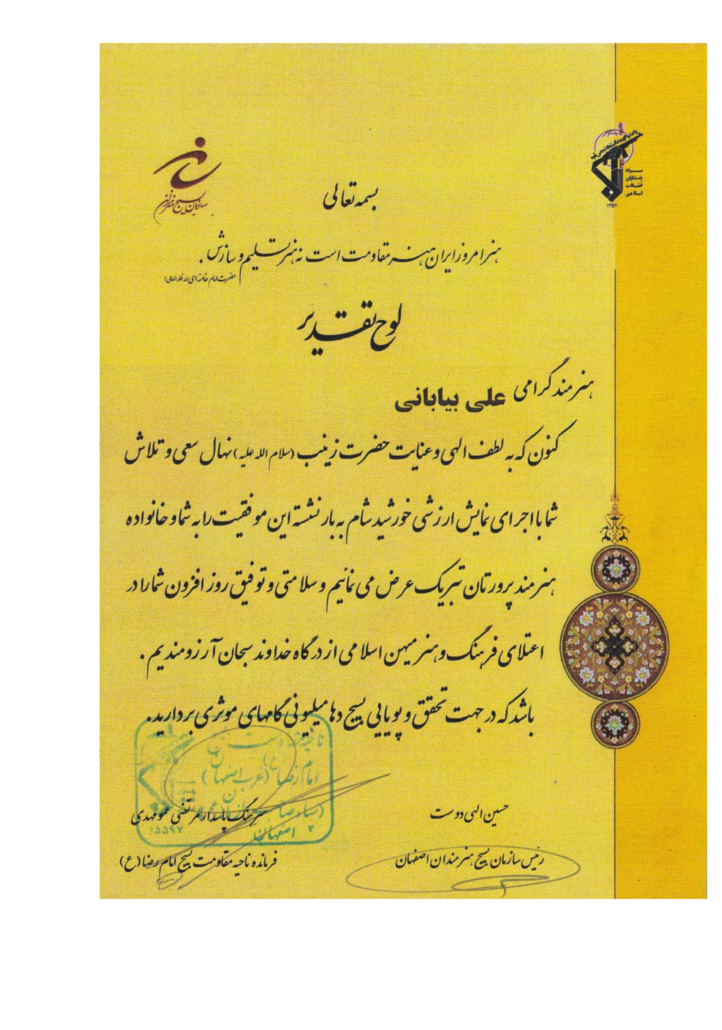 سپاه
پاسداران
انقلاب
اسلامی
۱۳۵۷
سازمان بسیج هنرمندان
بسمه تعالی
هنر امروز ایران هنر مقاومت است نه هنر تسلیم و سازش .
حضرت امام خامنه ای (مد ظله العالی)
لوح تقدیر
هنرمند گرامی علی بیابانی
کنون که به لطف الهی و عنایت حضرت زینب (سلام الله علیه) نهال سعی و تلاش
شما با اجرای نمایش ارزشی خورشید شام به بار نشسته این موفقیت را به شما و خانواده
هنرمند پرورتان تبریک عرض می نمائیم و سلامتی و توفیق روز افزون شما را در
اعتلای فرهنگ و هنر میهن اسلامی از درگاه خداوند سبحان آرزومندیم .
باشد که در جهت تحقق و پویایی بسیج دهها میلیونی گامهای موثری بردارید .
حسین الهی دوست
رئیس سازمان بسیج هنرمندان اصفهان
سرهنگ پاسدار مرتضی محمودی
فرمانده ناحیه مقاومت بسیج امام رضا (ع)
ناحیه مقاومت بسیج
امام رضا (ع) غرب اصفهان
اصفهان
۱۵۵۹۷